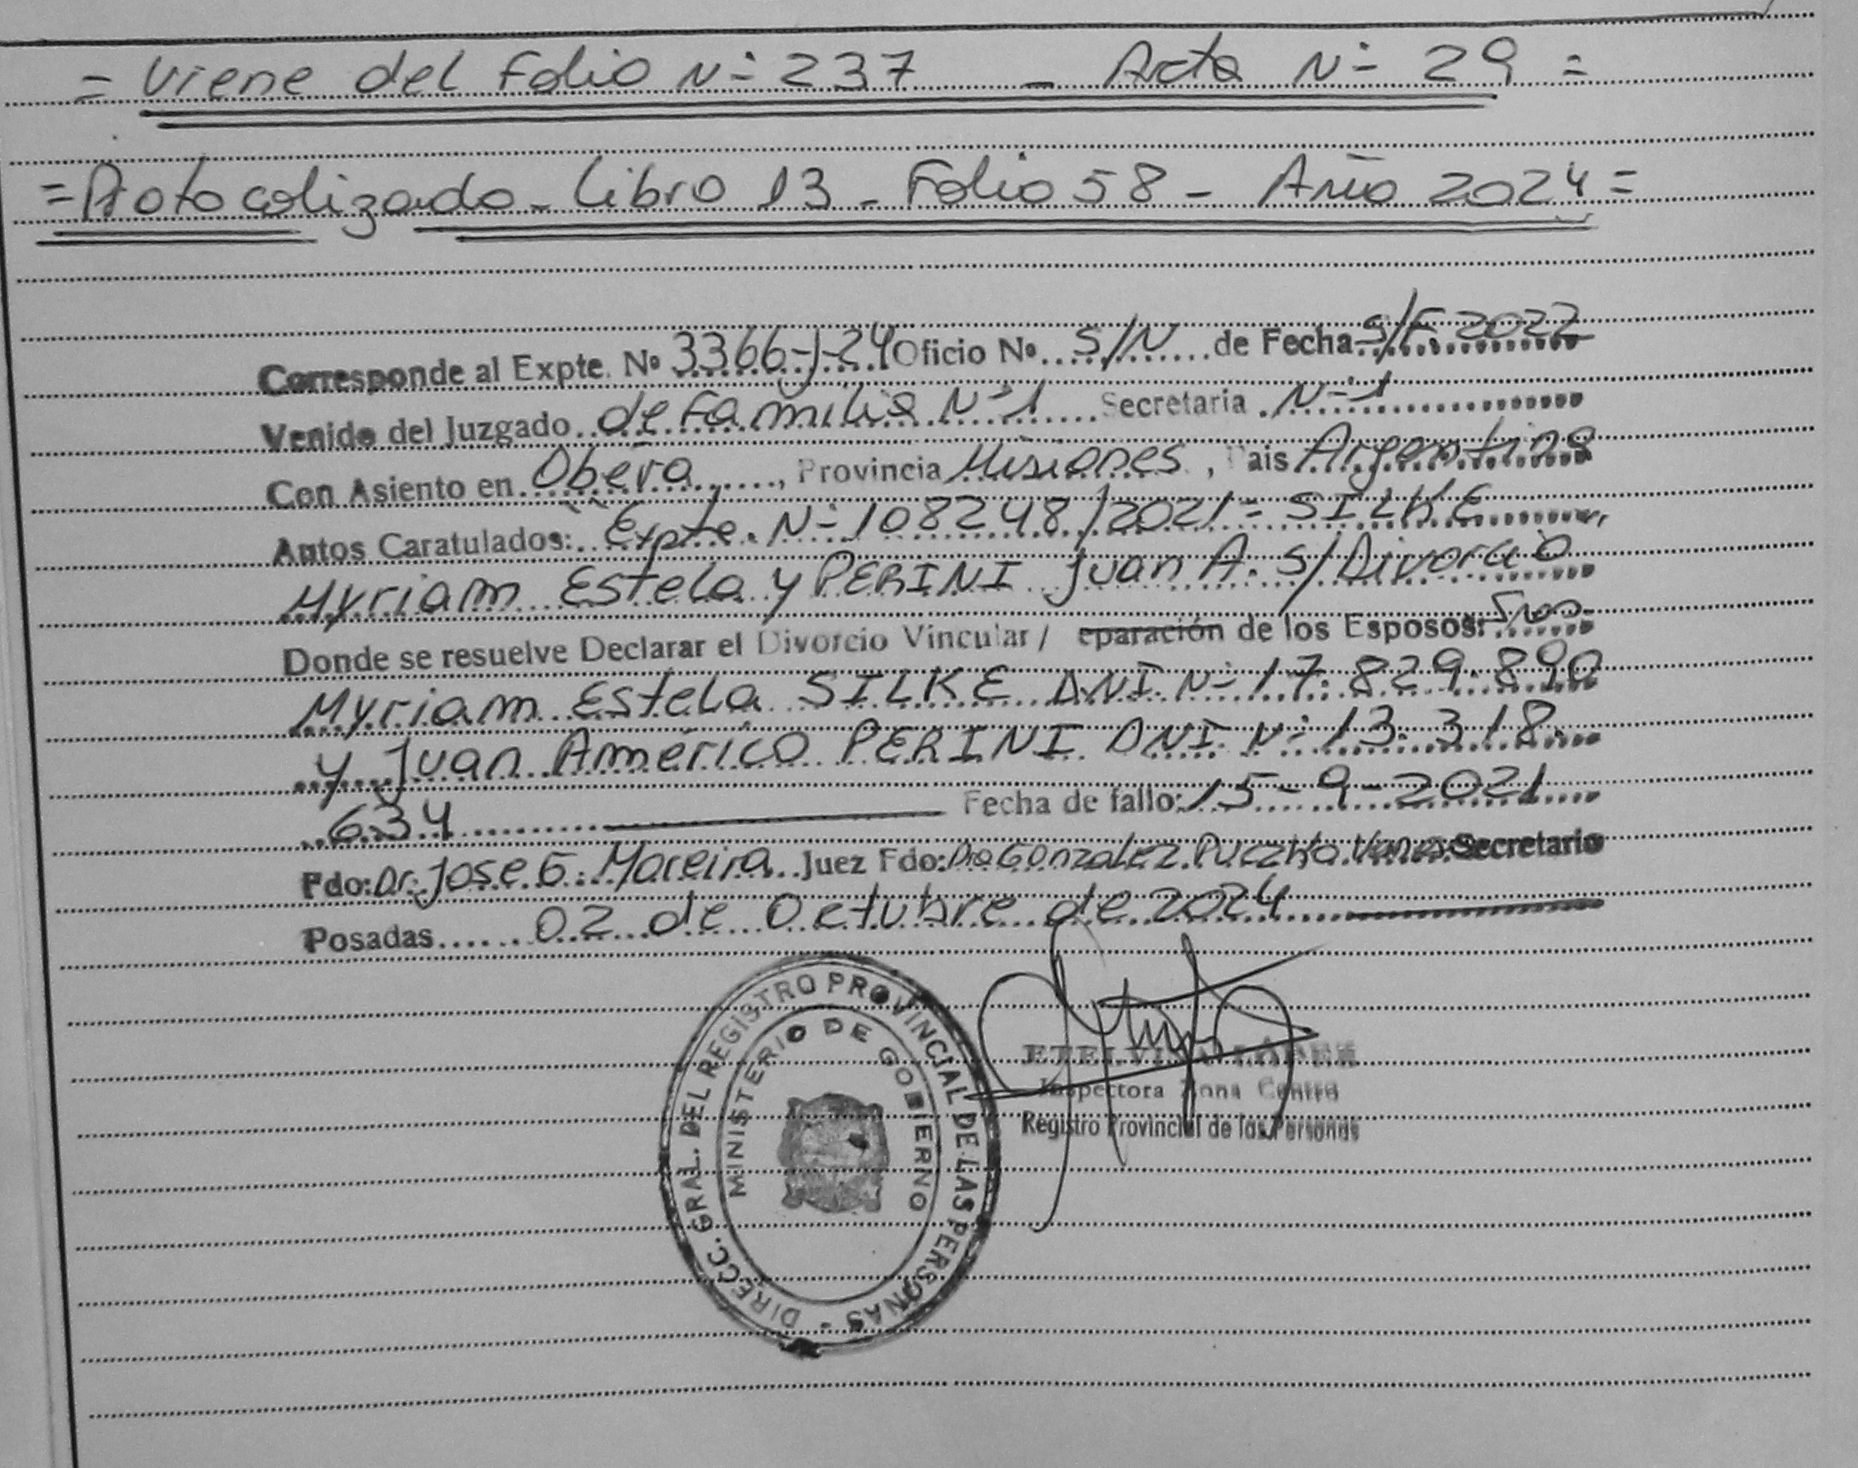 = Viene del Folio N° 237 - Acta N° 29 =
= Protocolizado - Libro 13 - Folio 58 - Año 2024 =
Corresponde al Expte. Nº 3366-J-24 Oficio Nº S/N de Fecha S/F 2022
Venido del Juzgado de Familia N° 1 Secretaria N° 1
Con Asiento en Oberá, Provincia Misiones, Pais Argentina
Autos Caratulados: Expte. N° 108248/2021 = SILKE
Myriam Estela y PERINI Juan A. S/Divorcio
Donde se resuelve Declarar el Divorcio Vincular / eparación de los Esposos:
Myriam Estela SILKE DNI N° 17.829.890
y Juan Américo PERINI DNI N° 13.318.
634 Fecha de fallo: 15-9-2021
Fdo: Dr. Jose G. Moreira Juez Fdo: Dra Gonzalez Secretario
Posadas 02 de Octubre de 2024
DIRECC. GRAL. DEL REGISTRO PROVINCIAL DE LAS PERSONAS -
MINISTERIO DE GOBIERNO
ETELVINA LOPEZ
Inspectora Zona Centro
Registro Provincial de las Personas